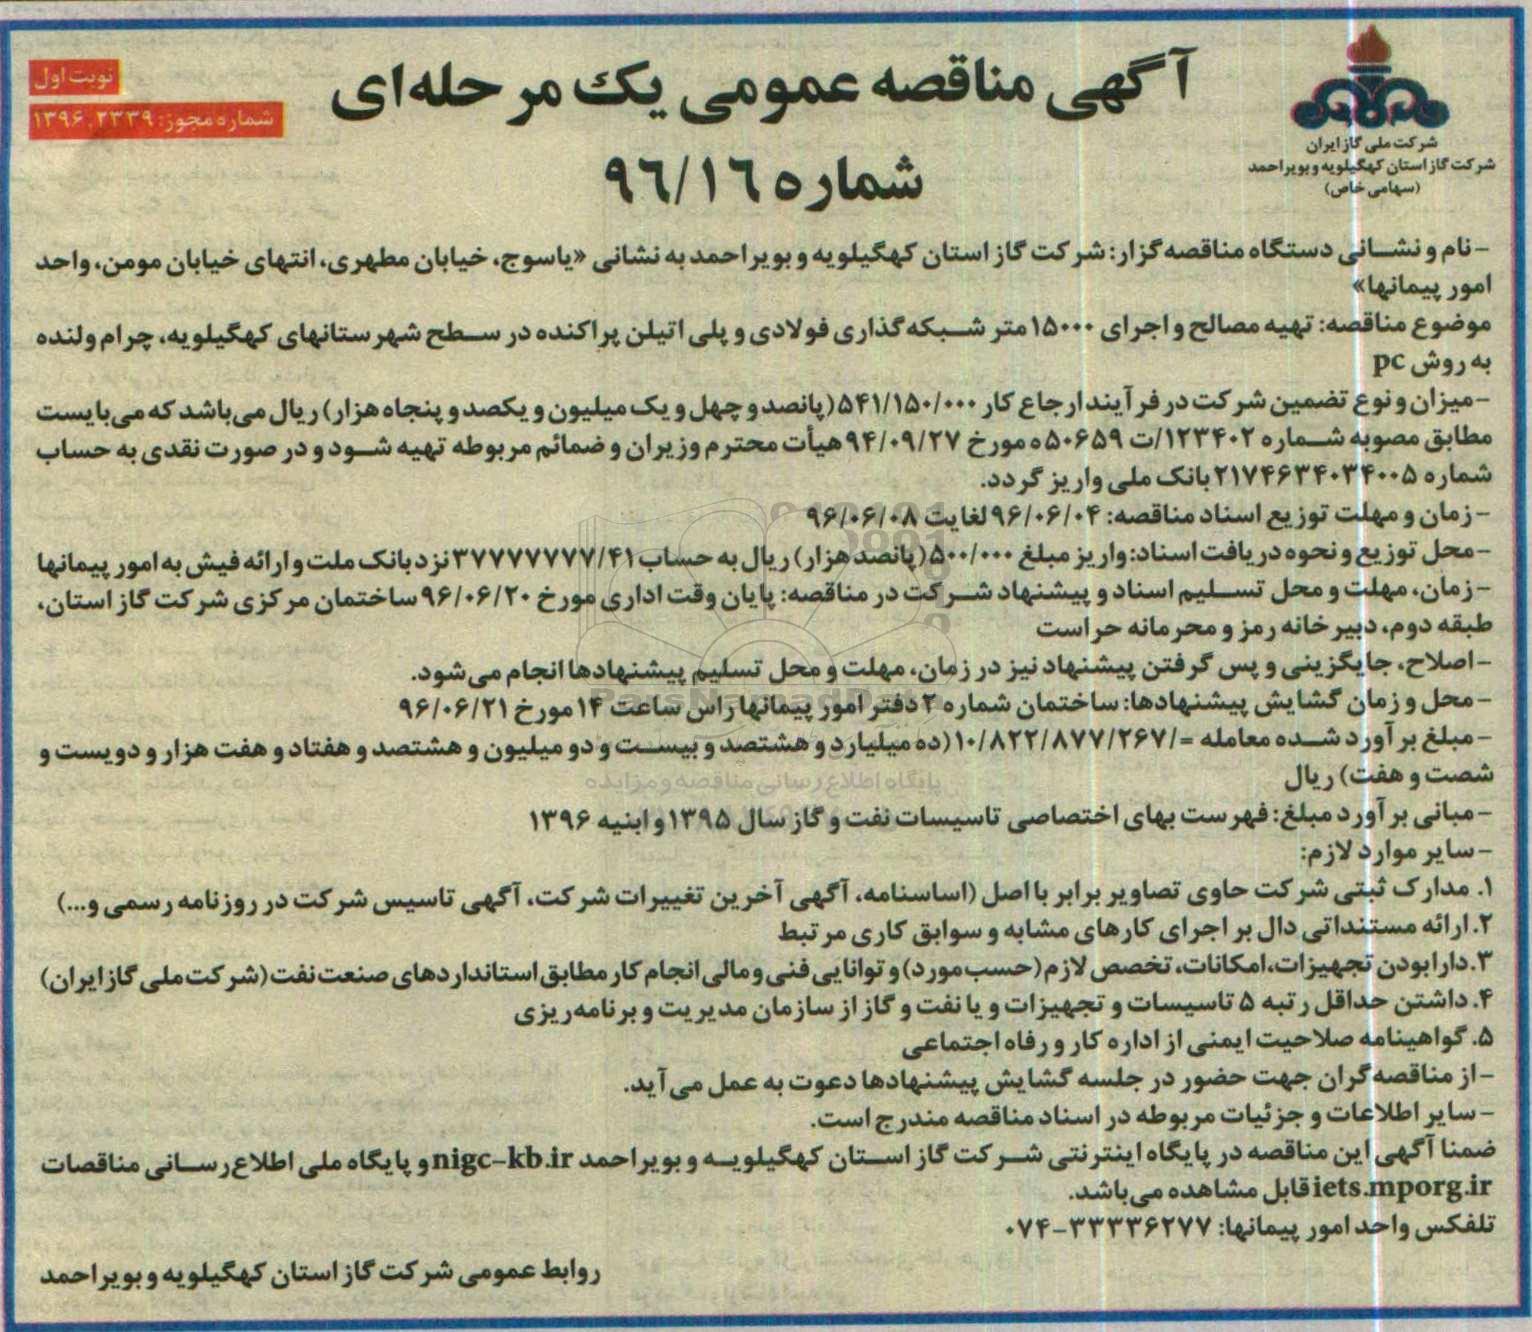 آگهی مناقصه عمومی یک مرحله‌ای
شماره ۹۶/۱۶
نوبت اول
شماره مجوز: ۱۳۹۶.۲۳۳۹
شرکت ملی گاز ایران
شرکت گاز استان کهگیلویه و بویراحمد
(سهامی خاص)
- نام و نشانی دستگاه مناقصه‌گزار: شرکت گاز استان کهگیلویه و بویراحمد به نشانی «یاسوج، خیابان مطهری، انتهای خیابان مومن، واحد
امور پیمانها»
موضوع مناقصه: تهیه مصالح و اجرای ۱۵۰۰۰ متر شبکه‌گذاری فولادی و پلی اتیلن پراکنده در سطح شهرستانهای کهگیلویه، چرام و لنده
به روش pc
- میزان و نوع تضمین شرکت در فرآیند ارجاع کار ۵۴۱/۱۵۰/۰۰۰ (پانصد و چهل و یک میلیون و یکصد و پنجاه هزار) ریال می‌باشد که می‌بایست
مطابق مصوبه شماره ۱۲۳۴۰۲/ت ۵۰۶۵۹ ه مورخ ۹۴/۰۹/۲۷ هیأت محترم وزیران و ضمائم مربوطه تهیه شود و در صورت نقدی به حساب
شماره ۲۱۷۴۶۳۴۰۳۴۰۰۵ بانک ملی واریز گردد.
- زمان و مهلت توزیع اسناد مناقصه: ۹۶/۰۶/۰۴ لغایت ۹۶/۰۶/۰۸
- محل توزیع و نحوه دریافت اسناد: واریز مبلغ ۵۰۰/۰۰۰ (پانصد هزار) ریال به حساب ۳۷۷۷۷۷۷۷/۴۱ نزد بانک ملت و ارائه فیش به امور پیمانها
- زمان، مهلت و محل تسلیم اسناد و پیشنهاد شرکت در مناقصه: پایان وقت اداری مورخ ۹۶/۰۶/۲۰ ساختمان مرکزی شرکت گاز استان،
طبقه دوم، دبیرخانه رمز و محرمانه حراست
- اصلاح، جایگزینی و پس گرفتن پیشنهاد نیز در زمان، مهلت و محل تسلیم پیشنهادها انجام می‌شود.
- محل و زمان گشایش پیشنهادها: ساختمان شماره ۲ دفتر امور پیمانها راس ساعت ۱۴ مورخ ۹۶/۰۶/۲۱
- مبلغ برآورد شده معامله =/۱۰/۸۲۲/۸۷۷/۲۶۷ (ده میلیارد و هشتصد و بیست و دو میلیون و هشتصد و هفتاد و هفت هزار و دویست و
شصت و هفت) ریال
- مبانی برآورد مبلغ: فهرست بهای اختصاصی تاسیسات نفت و گاز سال ۱۳۹۵ و ابنیه ۱۳۹۶
- سایر موارد لازم:
۱. مدارک ثبتی شرکت حاوی تصاویر برابر با اصل (اساسنامه، آگهی آخرین تغییرات شرکت، آگهی تاسیس شرکت در روزنامه رسمی و...)
۲. ارائه مستنداتی دال بر اجرای کارهای مشابه و سوابق کاری مرتبط
۳. دارا بودن تجهیزات، امکانات، تخصص لازم (حسب مورد) و توانایی فنی و مالی انجام کار مطابق استانداردهای صنعت نفت (شرکت ملی گاز ایران)
۴. داشتن حداقل رتبه ۵ تاسیسات و تجهیزات و یا نفت و گاز از سازمان مدیریت و برنامه‌ریزی
۵. گواهینامه صلاحیت ایمنی از اداره کار و رفاه اجتماعی
- از مناقصه‌گران جهت حضور در جلسه گشایش پیشنهادها دعوت به عمل می‌آید.
- سایر اطلاعات و جزئیات مربوطه در اسناد مناقصه مندرج است.
ضمنا آگهی این مناقصه در پایگاه اینترنتی شرکت گاز استان کهگیلویه و بویراحمد nigc-kb.ir و پایگاه ملی اطلاع‌رسانی مناقصات
iets.mporg.ir قابل مشاهده می‌باشد.
تلفکس واحد امور پیمانها: ۳۳۳۳۶۲۷۷-۰۷۴
روابط عمومی شرکت گاز استان کهگیلویه و بویراحمد
ParsNamadData
پایگاه اطلاع رسانی مناقصه و مزایده